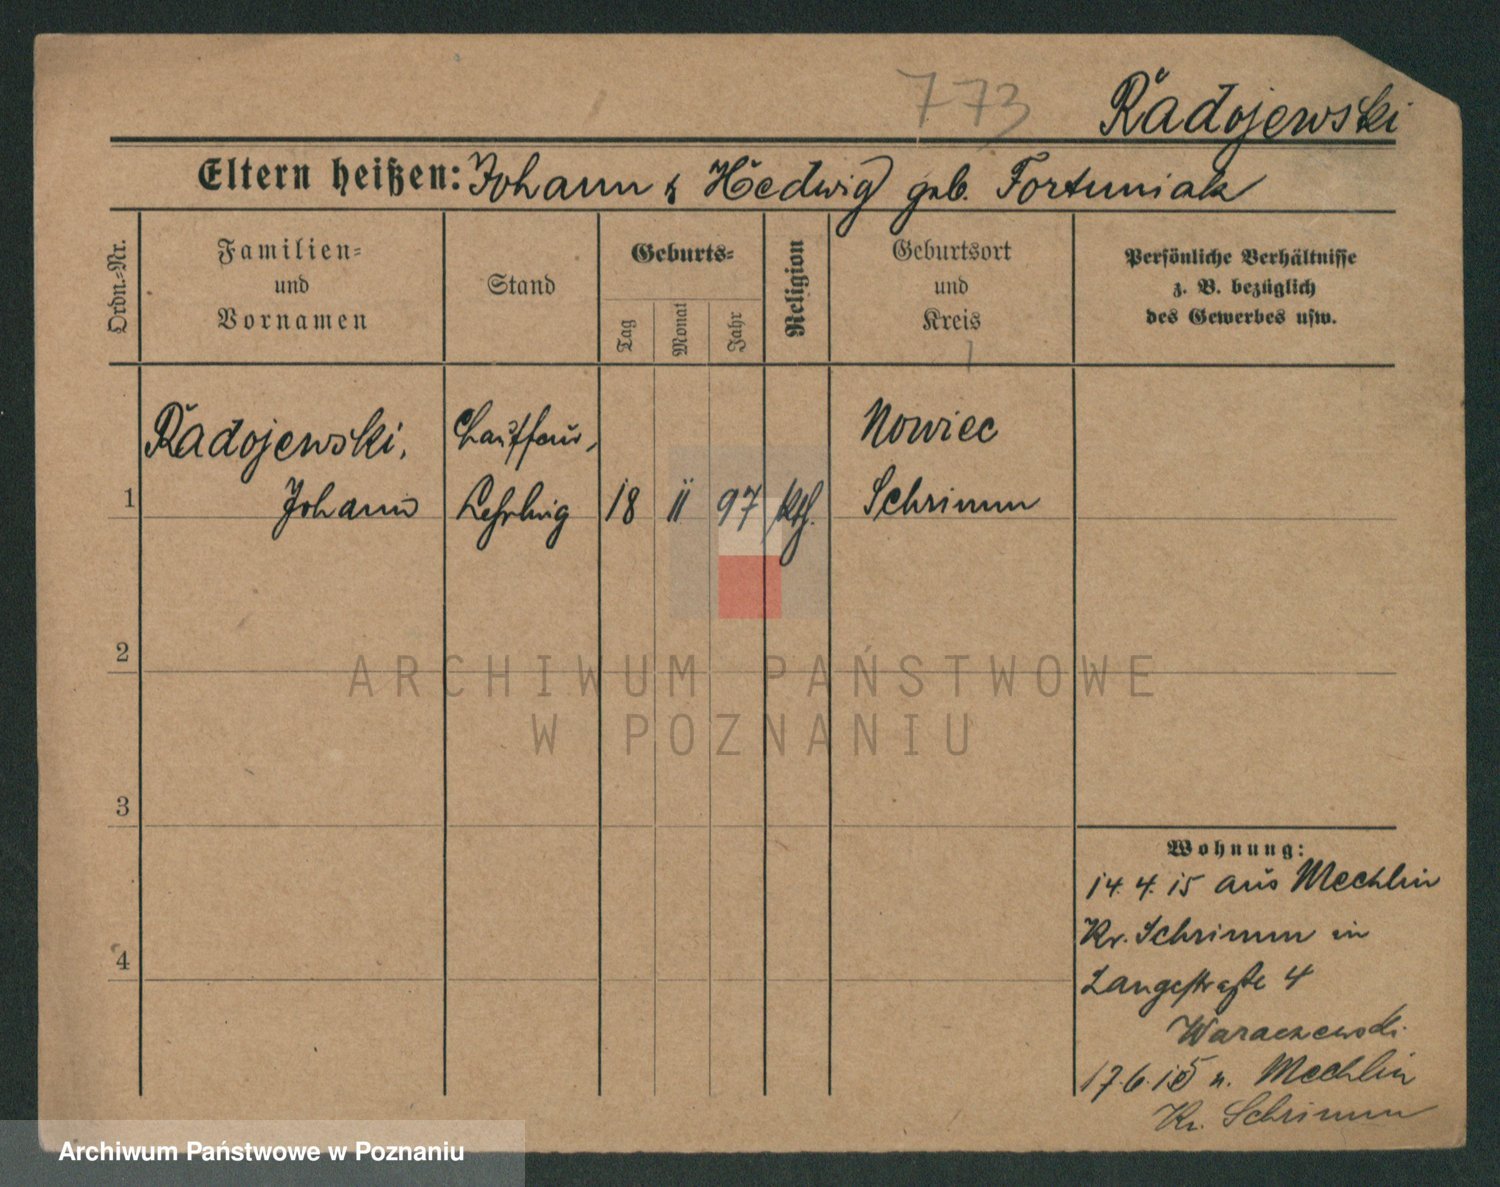 773
Radojewski
Eltern heißen: Johann & Hedwig geb. Fortuniak
Ordn.-Nr.
Familien-
und
Vornamen
Stand
Geburts-
Tag
Monat
Jahr
Religion
Geburtsort
und
Kreis
Persönliche Verhältnisse
z. B. bezüglich
des Gewerbes usw.
1
Radojewski,
Johann
Chauffeur,
Lehrling
18
11
97
kth.
Nowiec
Schrimm
2
3
4
Wohnung:
14.4.15 aus Mechlin
Kr. Schrimm in
Langestraße 4
Waraczewski
17.6.15 n. Mechlin
Kr. Schrimm
ARCHIWUM PAŃSTWOWE
W POZNANIU
Archiwum Państwowe w Poznaniu